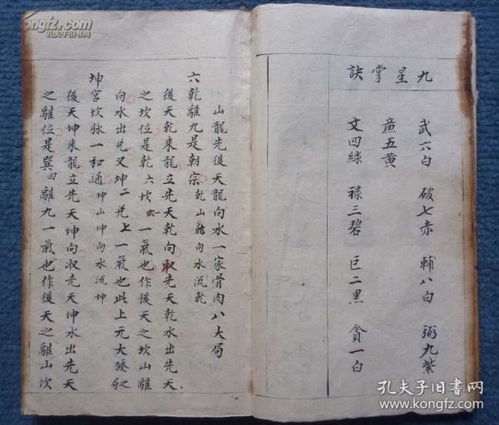 九星掌訣
武六白 破七赤 輔八白 弼九紫
廉五黃
文四綠 祿三碧 巨二黑 貪一白
山龍先後天龍向水一家骨肉八大局
六乾離九是朝宗 乾山乾向水流乾
後天乾來龍立先天乾向收先天乾水出先天
之坎位是乾六坎一氣也作後天之坎山離
向水出先又坤二兌上一氣也此上元大發局
坤宮坎脉一和通 坤山坤向水流坤
後天坤來龍立先天坤向收先天坤水出先天
之離位是巽四離九一氣也作後天之離山坎
孔夫子旧书网
www.kongfz.com
孔夫子旧书网
www.kongfz.com